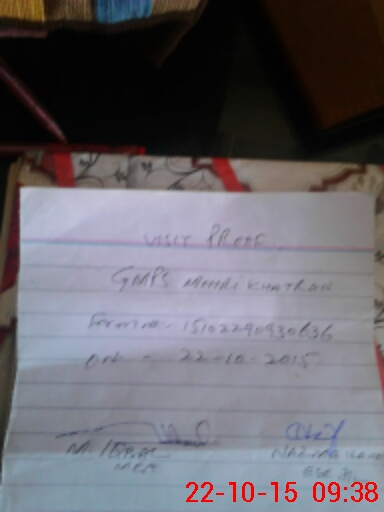 VISIT PROOF
GMPS
Form no:- 15102290930636
ON - 22-10-2015
M. Iqbal
MEA
NAZIMA
22-10-15 09:38